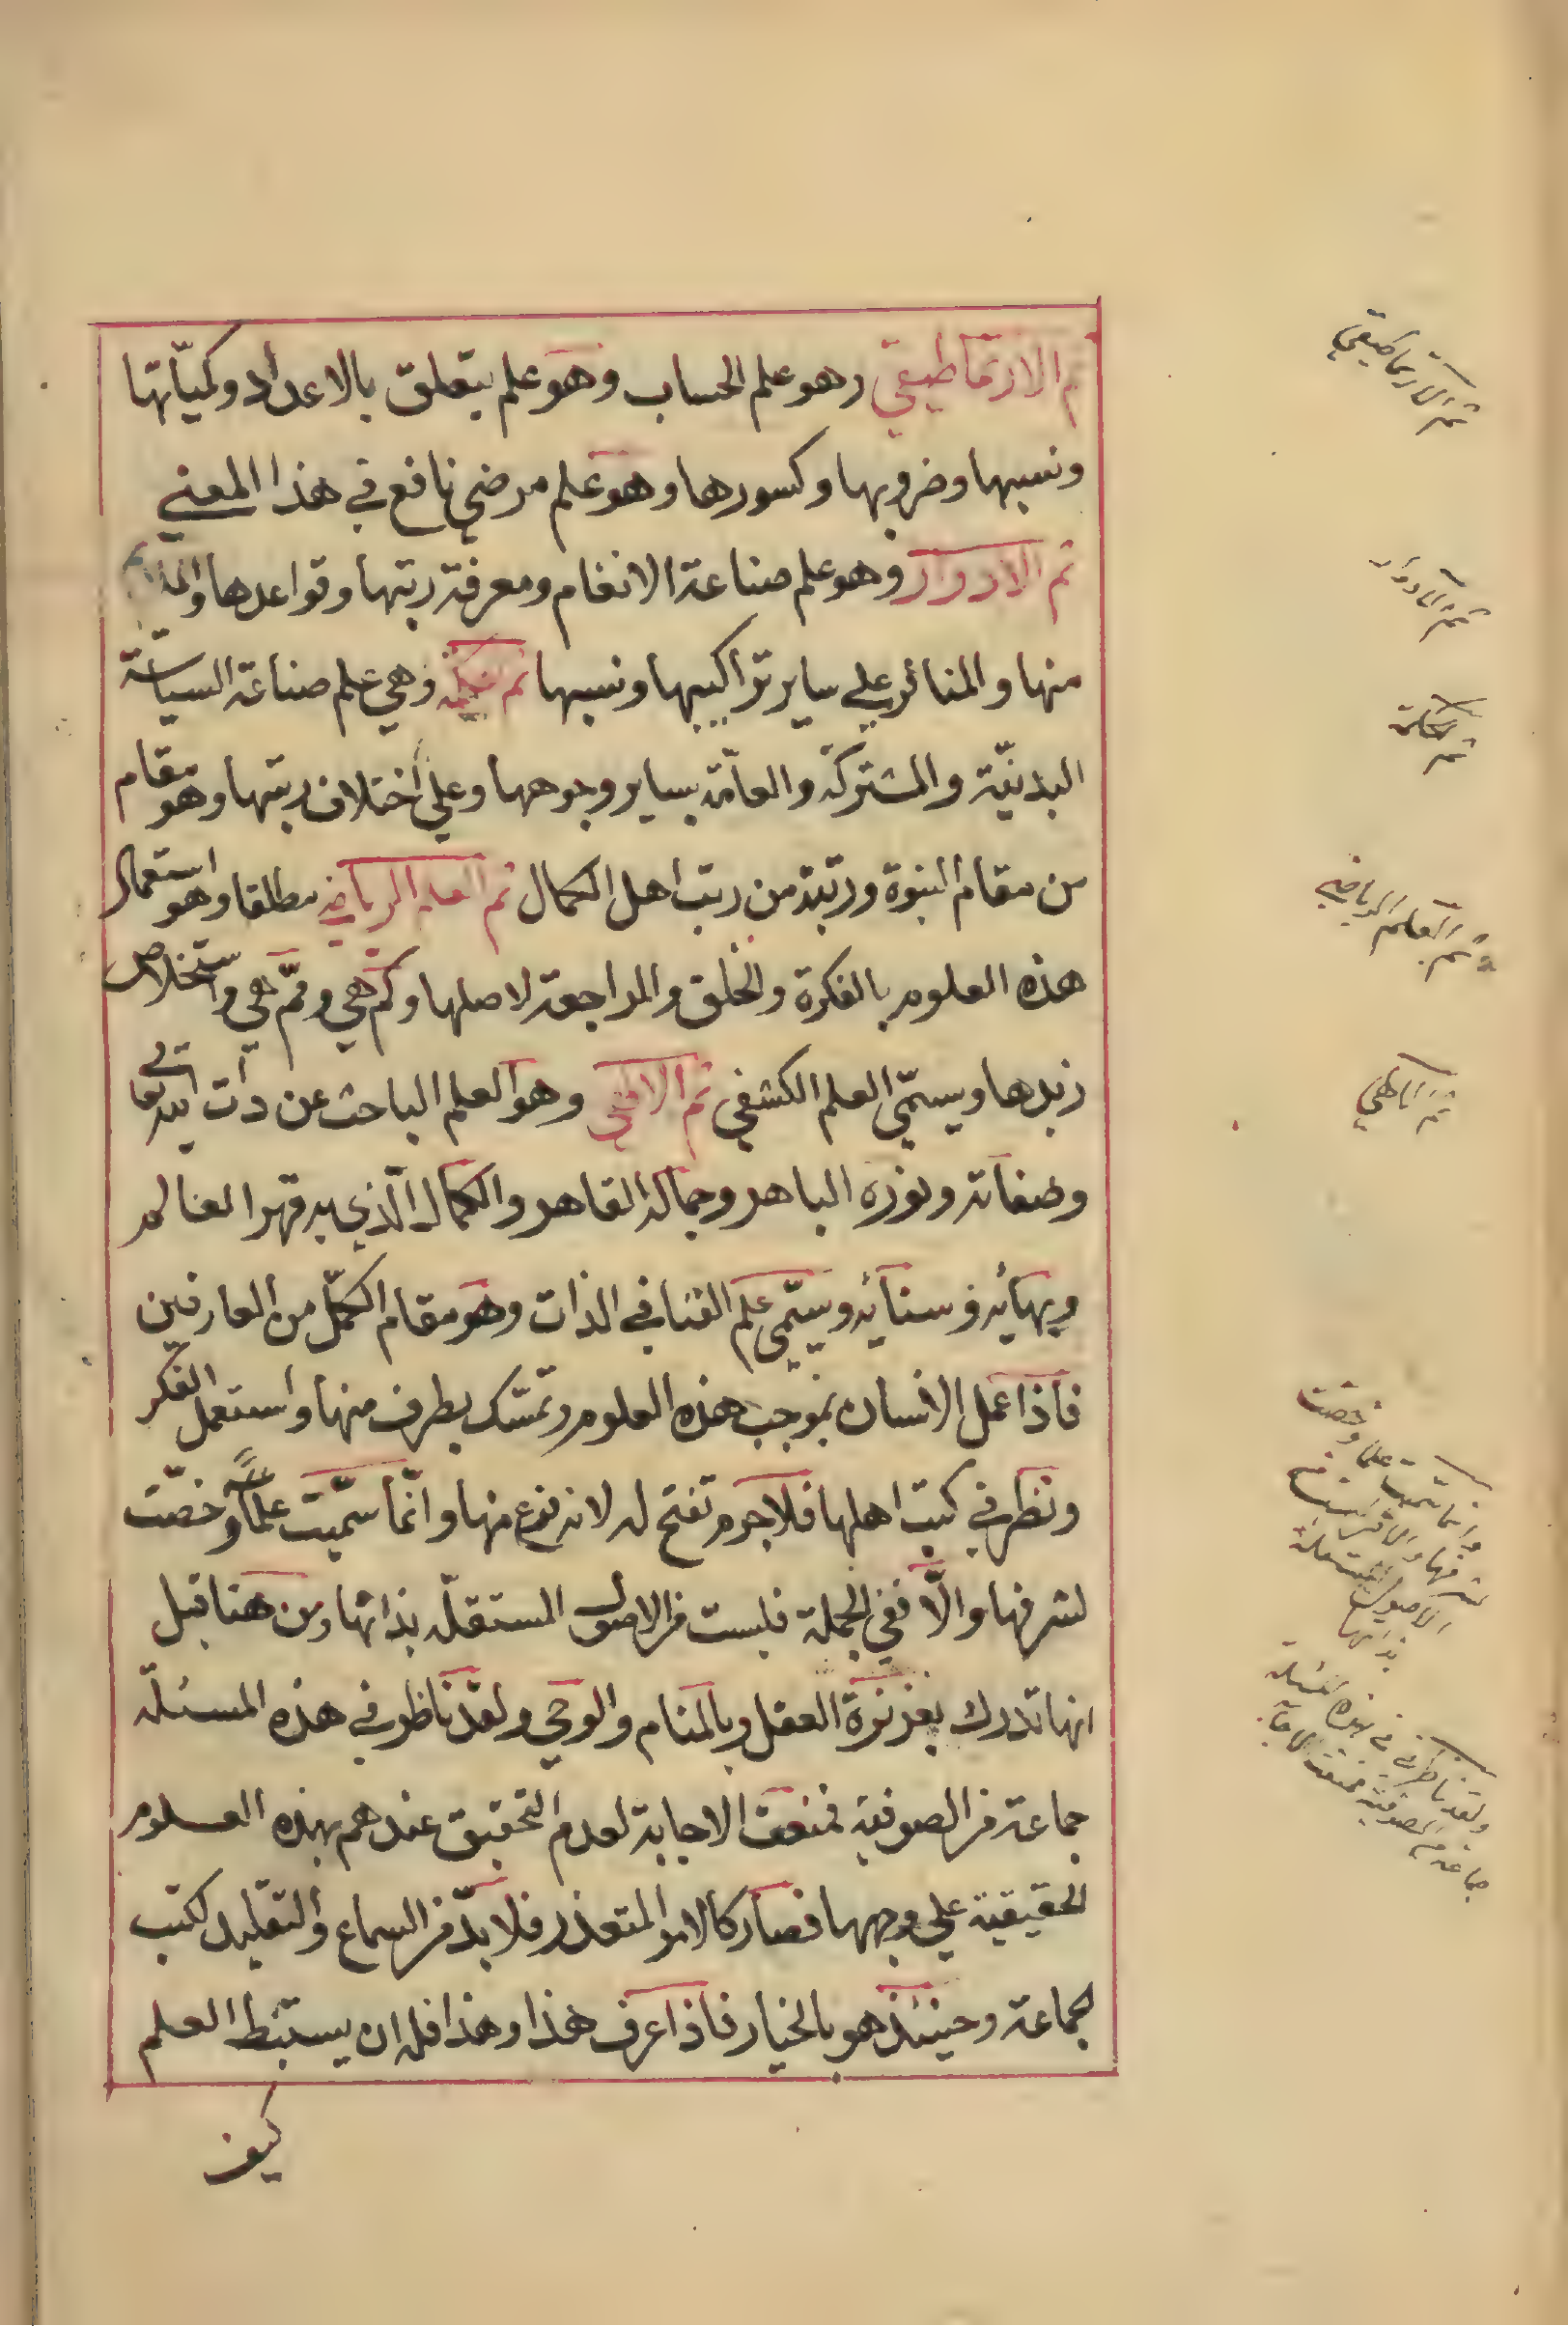 ثم الارتماطيقي وهو علم الحساب وهو علم يتعلق بالاعداد وكمياتها
ونسبها وضروبها وكسورها وهو علم مرضي نافع في هذا المعني
ثم الادوار وهو علم صناعة الانغام ومعرفة رتبها وقواعدها والملايم
منها والمنافر علي ساير تراكيبها ونسبها ثم الحكمة وهي علم صناعة السياسة
البدنيّة والمشتركة والعامّة بساير وجوهها وعلي اختلاف رتبها وهو مقام
من مقام النبوة ورتبة من رتب اهل الكمال ثم العلم الرياضي مطلقا وهو استعمال
هذه العلوم بالفكرة والخلق والمراجعة لاصلها وكم هي وممّ هي واستخلاص
زبدها ويسمّي العلم الكشفي ثم الالهي وهو العلم الباحث عن ذات الله تعالي
وصفاته ونوره الباهر وجماله القاهر والكمال الّذي به قهر العالم
وبهائه وسنائه ويسمّي علم الفنا في الذات وهو مقام الكمّل من العارفين
فاذا عمل الانسان بموجب هذه العلوم وتمسّك بطرف منها واستعمل الفكر
ونظر في كتب اهلها فلا جرم تفتح له لانه نوع منها وانّما سمّيت علماً وخصّت
لشرفها والّا ففي الجملة فليست من الاصول المستقلّه بذاتها ومن هنا قيل
انها تدرك بغزيزة العقل وبالمنام والوحي ولقد ناظر في هذه المسئلة
جماعة من الصوفية فمنعت الاجابة لعدم التحقيق عندهم بهذه العلوم
الحقيقية علي وجهها فصار كالامر المتعذر فلا بدّ من السماع والتقليد لكتب
الجماعة وحينئذ هو بالخيار فاذا عرف هذا وهذا فله ان يستنبط العلم
كيف
ثم الارتماطيقي
ثم الادوار
ثم الحكمة
ثم العلم الرياضي
ثم الالهي
وانما سميت علما وخصت
لشرفها والا فليست من
الاصول المستقلة
بذاتها
ولقد ناظر في هذه المسئلة
جماعة من الصوفية فمنعت الاجابة